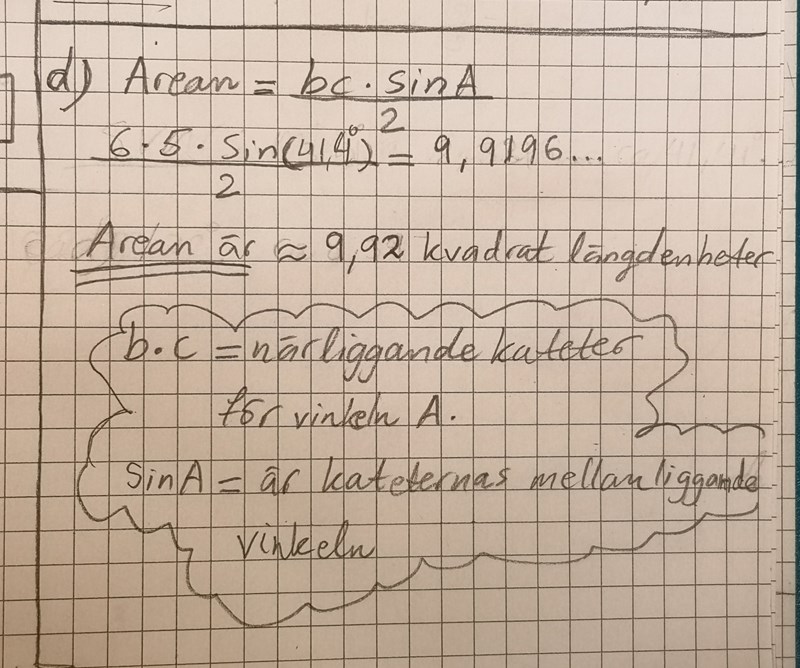 d) Arean = bc · sinA
2
6·5·sin(41,4°) = 9,9196...
2
Arean är ≈ 9,92 kvadrat längdenheter
b·c = närliggande kateter
för vinkeln A.
sinA = är kateternas mellanliggande
vinkeln